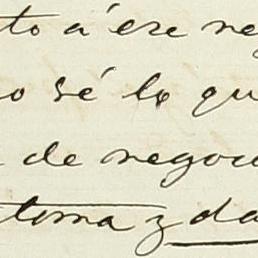 to á ese ne
o sé lo qu
de negoci
toma y da